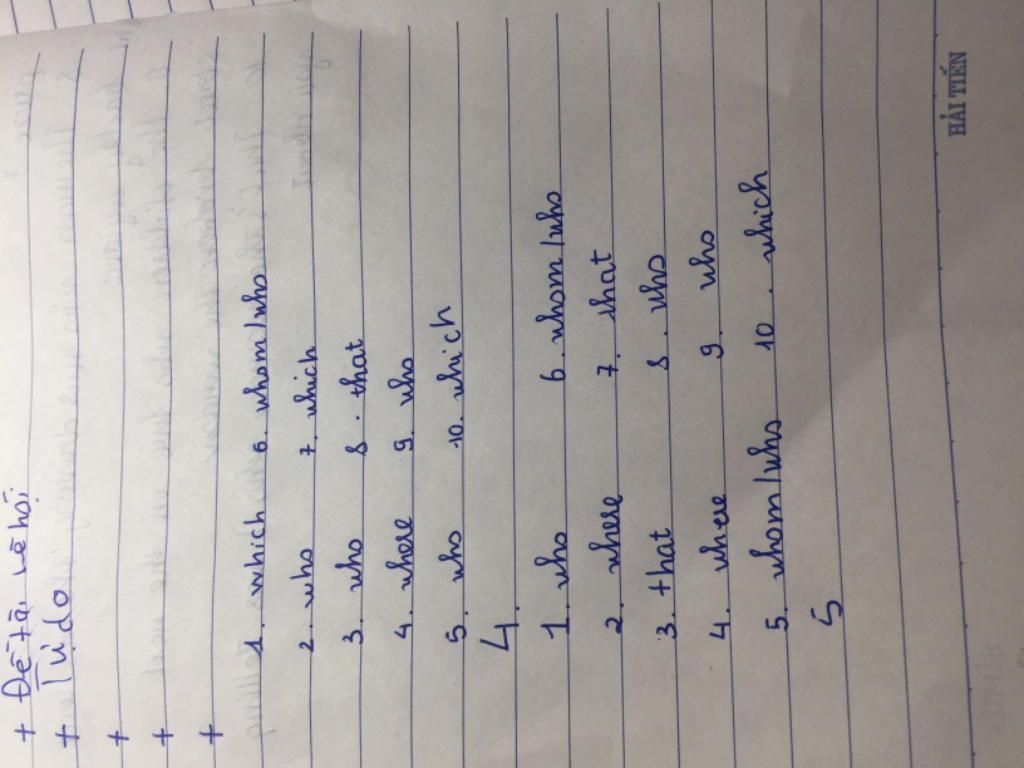 + Đề tài xã hội
+ Tự do
+
+
+
1. which 6. whom/who
2. who 7. which
3. who 8. that
4. where 9. who
5. who 10. which
4.
1. who 6. whom/who
2. where 7. that
3. that 8. who
4. where 9. who
5. whom/who 10. which
5
HẢI TIẾN